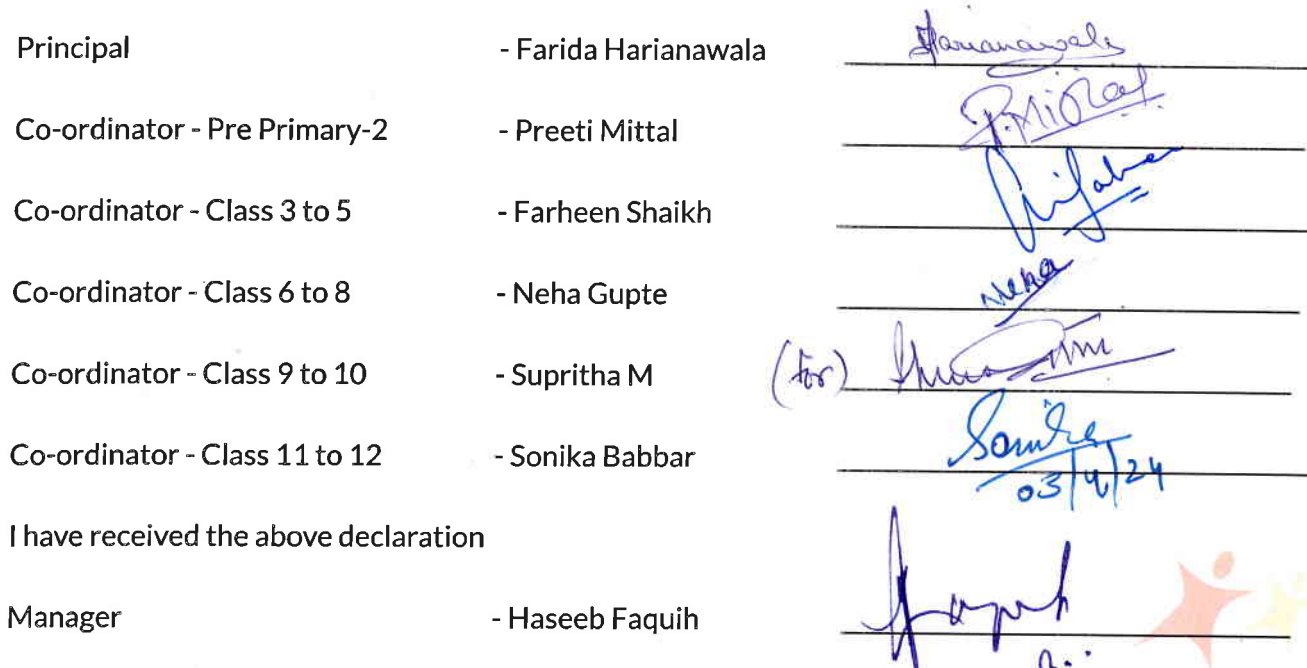 Principal - Farida Harianawala Harianawala
Co-ordinator - Pre Primary-2 - Preeti Mittal P. Mittal
Co-ordinator - Class 3 to 5 - Farheen Shaikh
Co-ordinator - Class 6 to 8 - Neha Gupte Neha
Co-ordinator - Class 9 to 10 - Supritha M (for)
Co-ordinator - Class 11 to 12 - Sonika Babbar Sonika
03/4/24
I have received the above declaration
Manager - Haseeb Faquih